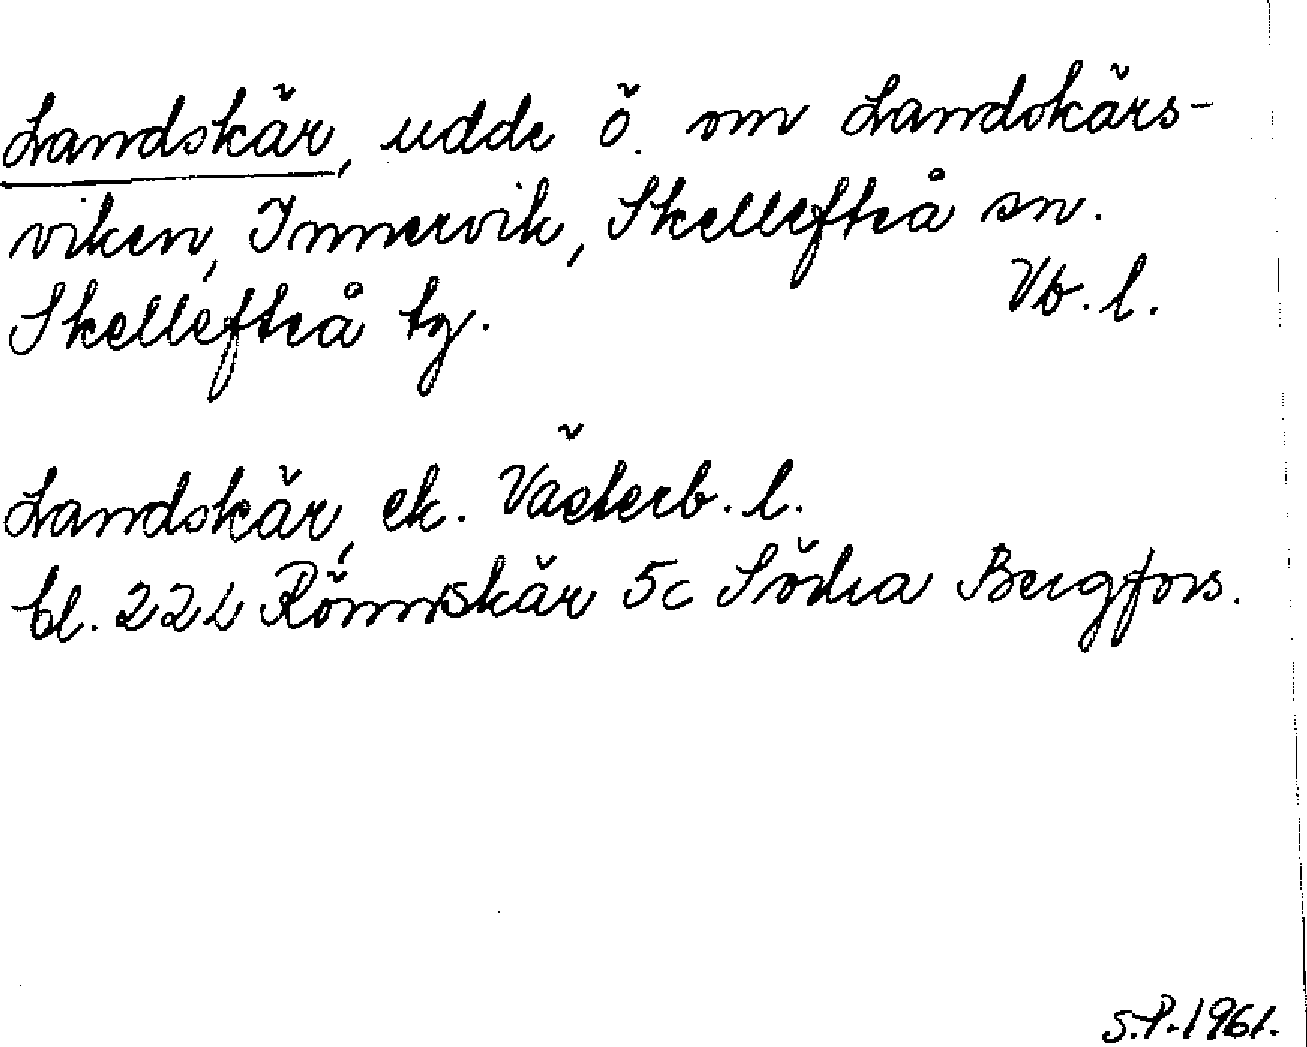 Landskär, udde ö. om Landskärs-
viken, Innervik, Skellefteå sn.
Skellefteå tg. Vb. l.
Landskär, ek. Västerb. l.
bl. 22L Rönnskär 5c Södra Bergfors.
S.P. 1961.